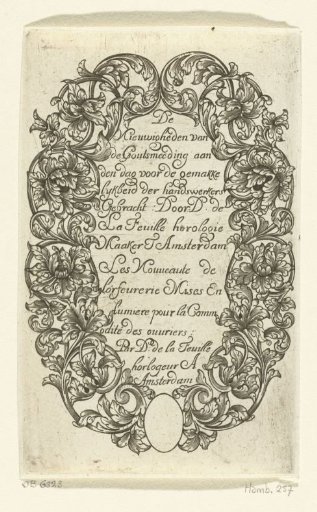 De
Nieuwigheden van
de Goutsmeeding aan
den dag voor de gemakke
lykheid der handswerkers
Gebracht Door D. de
La Feuille horologie
Maaker T Amsterdam
Les Nouveaute de
lorfeurerie Mises En
lumiere pour la Comm
dite des ouuriers
Par D. de la Feuille
horlogeur A
Amsterdam
Homb. 257